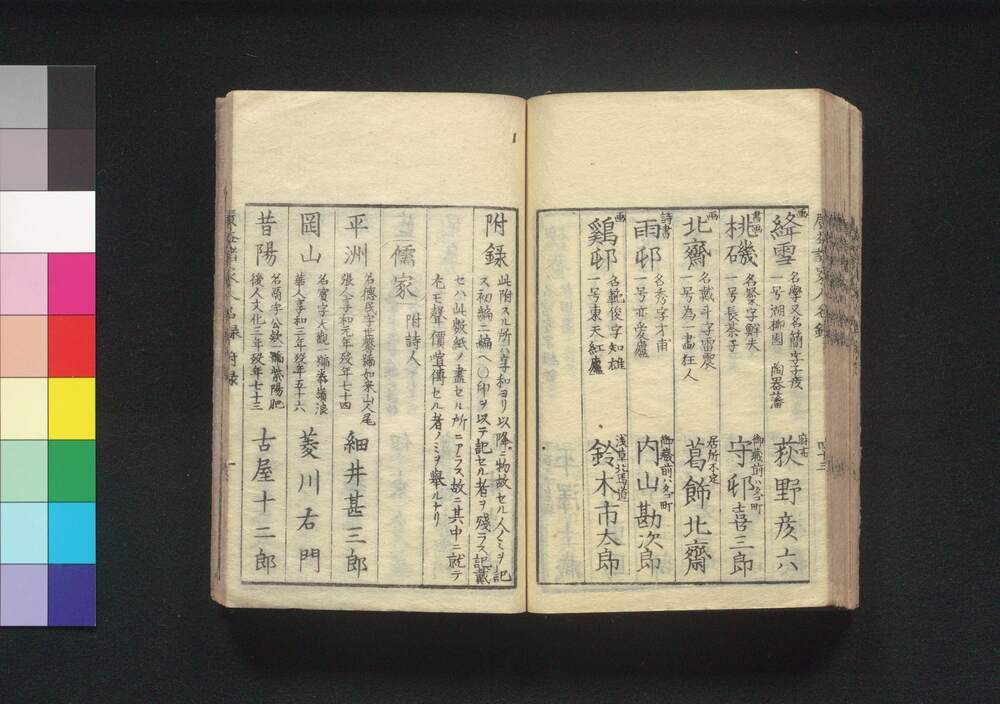 画
絳雪
名學又名簡字子虔
一号湖柳園 陶器藩
麻布
荻野彦六
書画
桃磯
名粲字鮮夫
一号長茶子
御蔵前
守邨士喜三郎
画
北齋
名戴斗字雷震
一号為一畵狂人
居所不定
葛飾北齋
詩書
雨邨
名秀字才甫
一号亦愛廬
御蔵前
内山勘次郎
画
鷄邨
名範俊字知雄
一号東天紅廬
浅草北馬道
鈴木市太郎
四十三
附録
此附スル所ハ享和ヨリ以降ニ物故セル人ノミヲ記
ス初編二編ヘ〇印ヲ以テ記セル者ヲ残ラス記載
セハ此数紙ノ盡セル所ニアラス故ニ其中ニ就テ
尤モ聲價喧傳セル者ノミヲ舉ルナリ
儒家
附詩人
平洲
名德民字世馨号如来山人尾
張人享和元年歿年七十四
細井甚三郎
岡山
名賓字大觀
華人享和三年歿年五十六
菱川右門
昔陽
名鬲字公款一号紫陽肥
後人文化三年歿年七十三
古屋十二郎